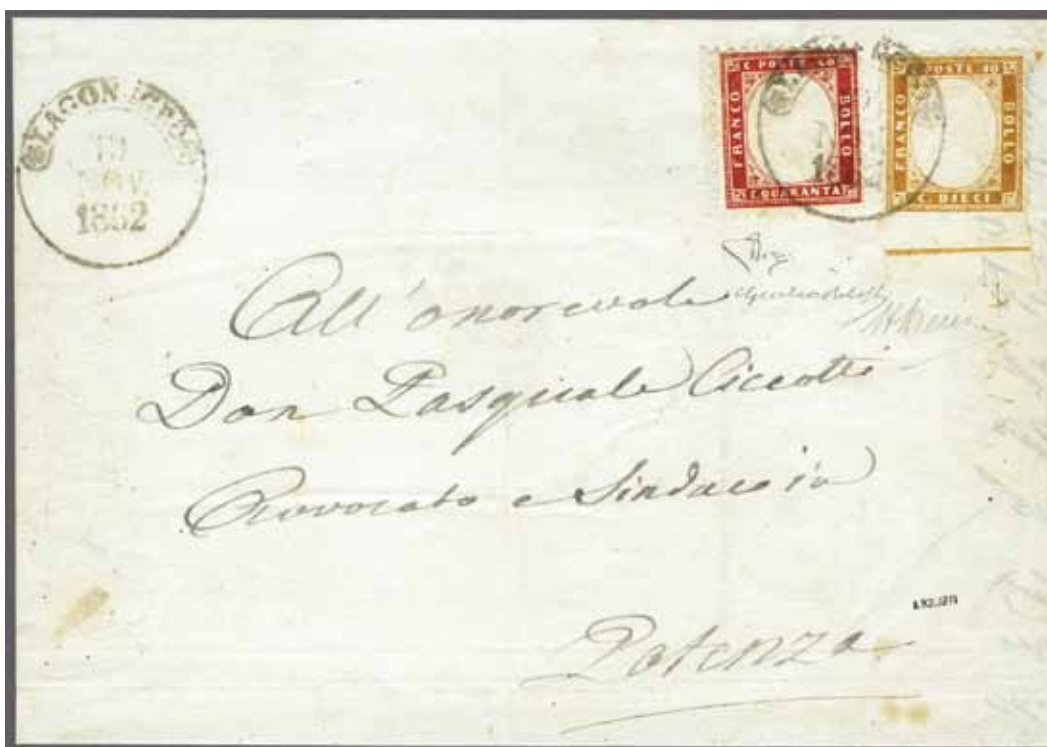 LAGONEGRO
19
NOV.
1862
C. POSTE 40
FRANCO
BOLLO
C. QUARANTA
C. POSTE 10
FRANCO
BOLLO
C. DIECI
All' onorevole
Don Pasquale Ciccotti
Avvocato e Sindaco in
Potenza